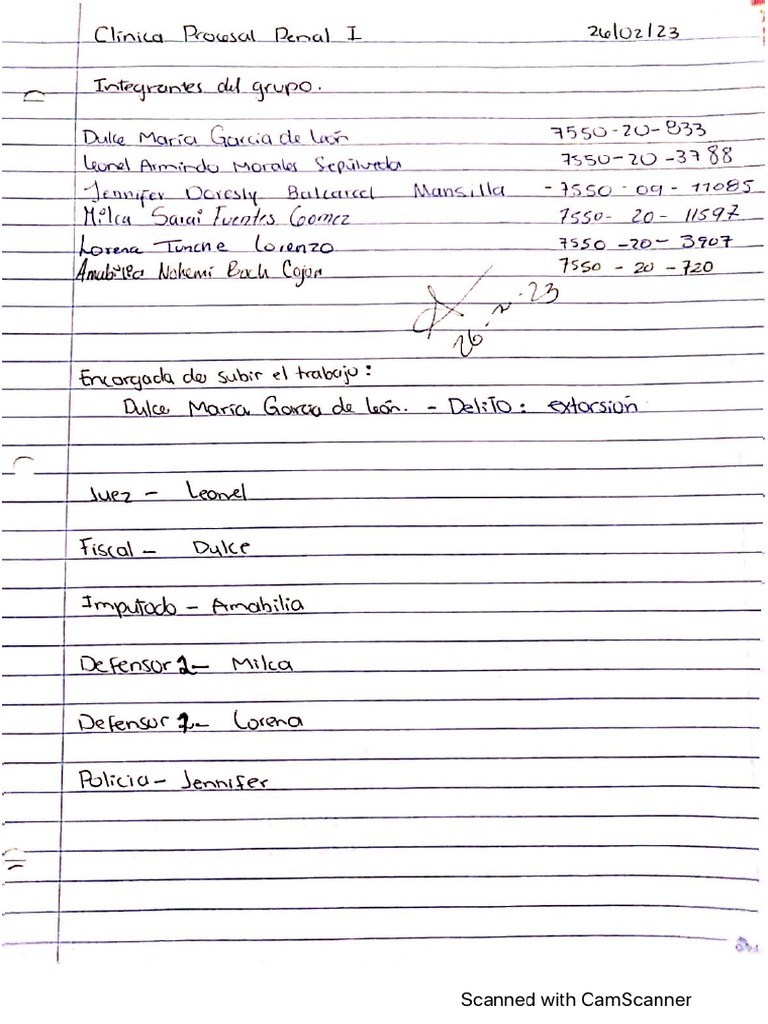 Clínica Procesal Penal I 26/02/23
Integrantes del grupo.
Dulce María García de león 7550-20-833
Leonel Armindo Morales Sepúlveda 7550-20-3788
Jennifer Doresly Balcarcel Mansilla - 7550-09-11085
Milca Sarai Fuentes Gomez 7550-20-11597
Lorena Tunche Lorenzo 7550-20-3907
Amabilia Nohemi Cojon 7550-20-720
26 23
Encargada de subir el trabajo:
Dulce María García de león. - Delito: extorsión
Juez - Leonel
Fiscal - Dulce
Imputado - Amabilia
Defensor - Milca
Defensor - Lorena
Policia - Jennifer
Scanned with CamScanner